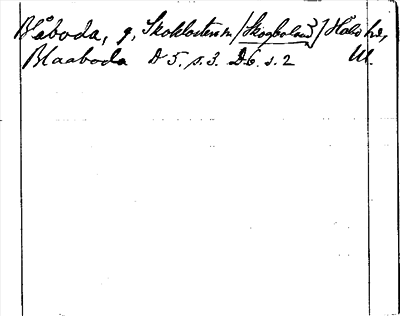 Blåboda, g, Skokloster sn [Skogboland] Håbo hd,
Blaaboda D 5. s. 3. D 6. s. 2 Ul.